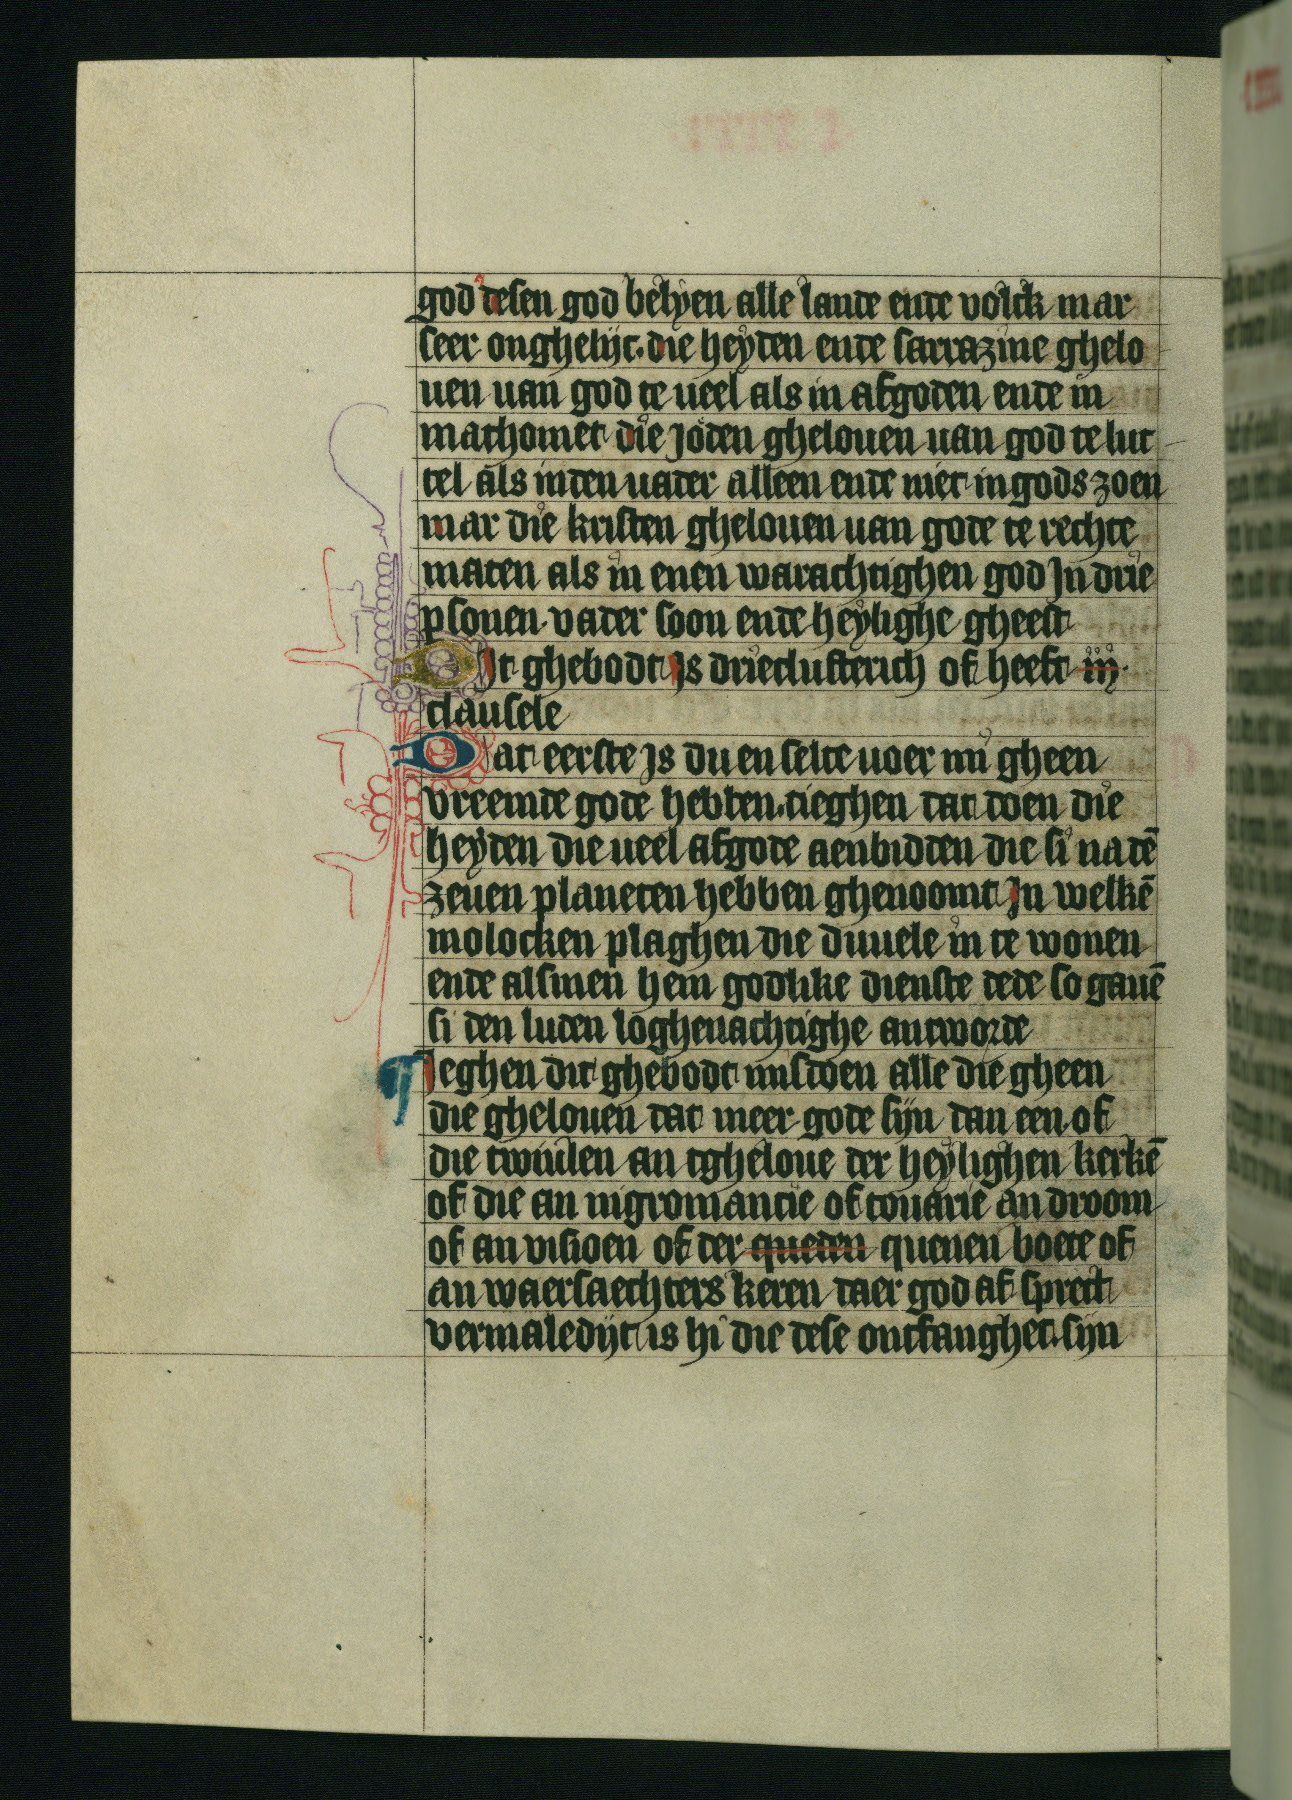 god desen god belyen alle lande ende volck mar
seer onghelijc. die heyden ende sarrazine ghelo
uen uan god te ueel als in afgoden ende in
mathomet die joden ghelouen uan god te lut
tel als inden uader alleen ende niet in gods zoen
mar die kristen ghelouen uan gode te rechte
maten als in enen warachtighen god Jn drie
psonen. vader soon ende heylighe gheest
Dit ghebodt Js drieclufterich of heeft iij.
clausele
Dat eerste Js du en selte uoer mi gheen
vreemde gode hebben. tieghen dat doen die
heyden die ueel afgode aenbidden die si na dē
zeuen planeten hebben ghenoomt Jn welkē
molocken plaghen die duuele in te wonen
ende alsmen hem godlike dienste dede so gauē
si den luden loghenachtighe antworde
¶ Jeghen dit ghebodt misdoen alle die gheen
die ghelouen dat meer gode sijn dan een of
die twiuelen an tgheloue der heylighen kerkē
of die an nigromancie of touarie an droom
of an visioen of der queden quenen boete of
an waersaechters keren daer god af sprect
vermaledijt is hi die dese ontfanghet. sijn